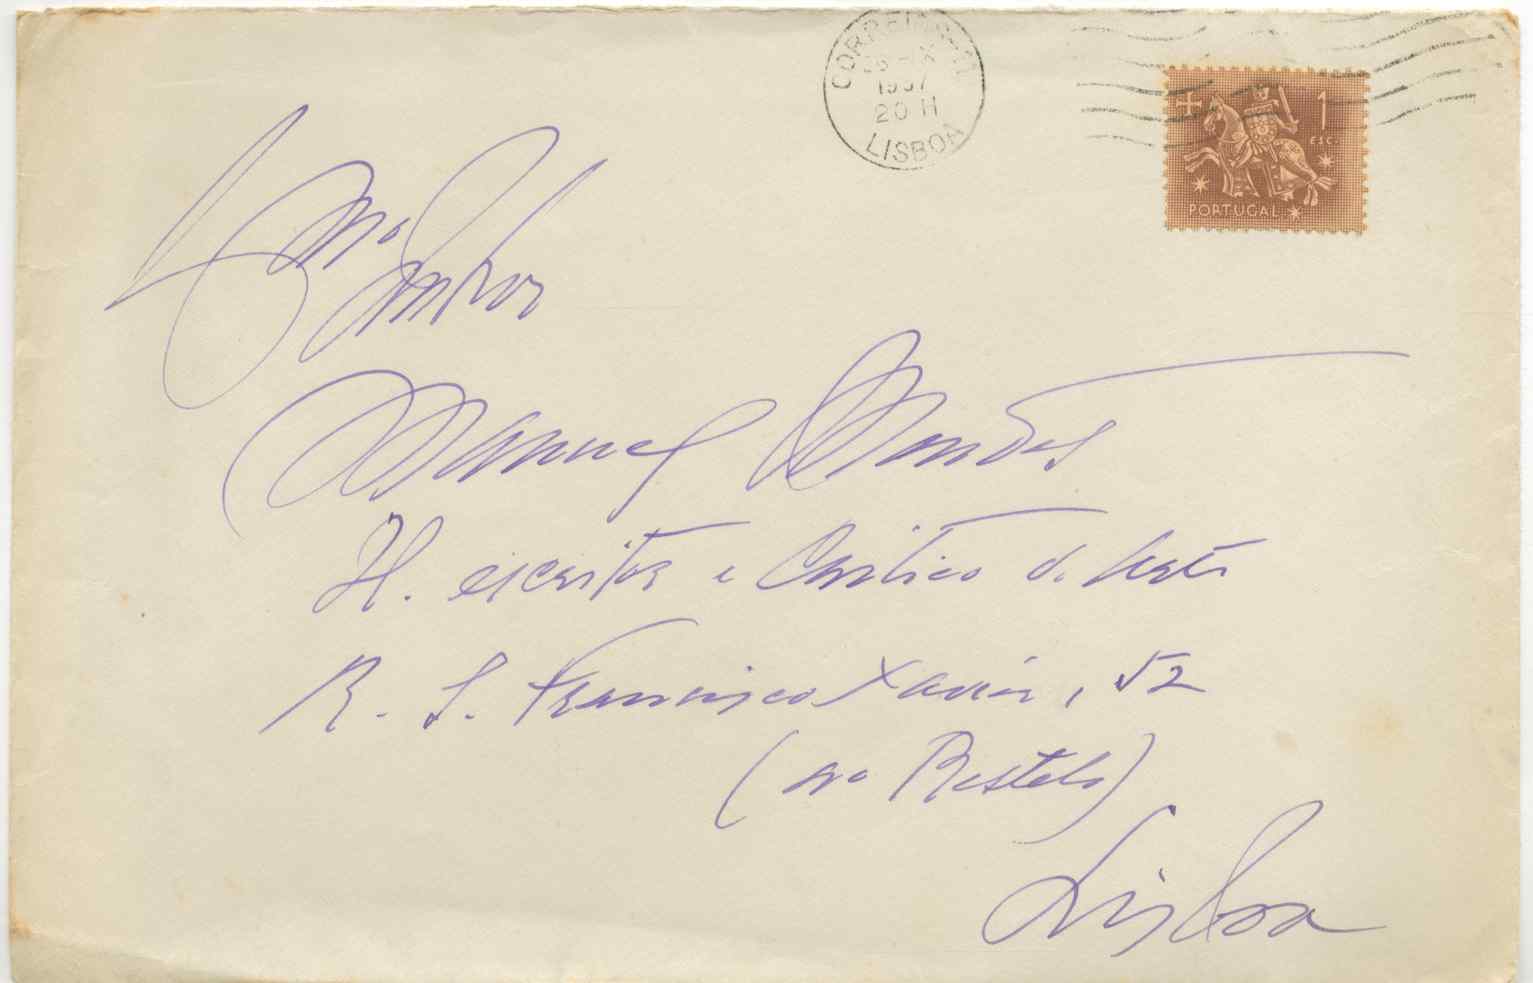 CORREIOS
1957
20 H
LISBOA
1
ESC.
PORTUGAL
Senhor
Manuel Mendes
Il. escritor e Crítico d. Arte
R. S. Francisco Xavier, 52
(ao Restelo)
Lisboa